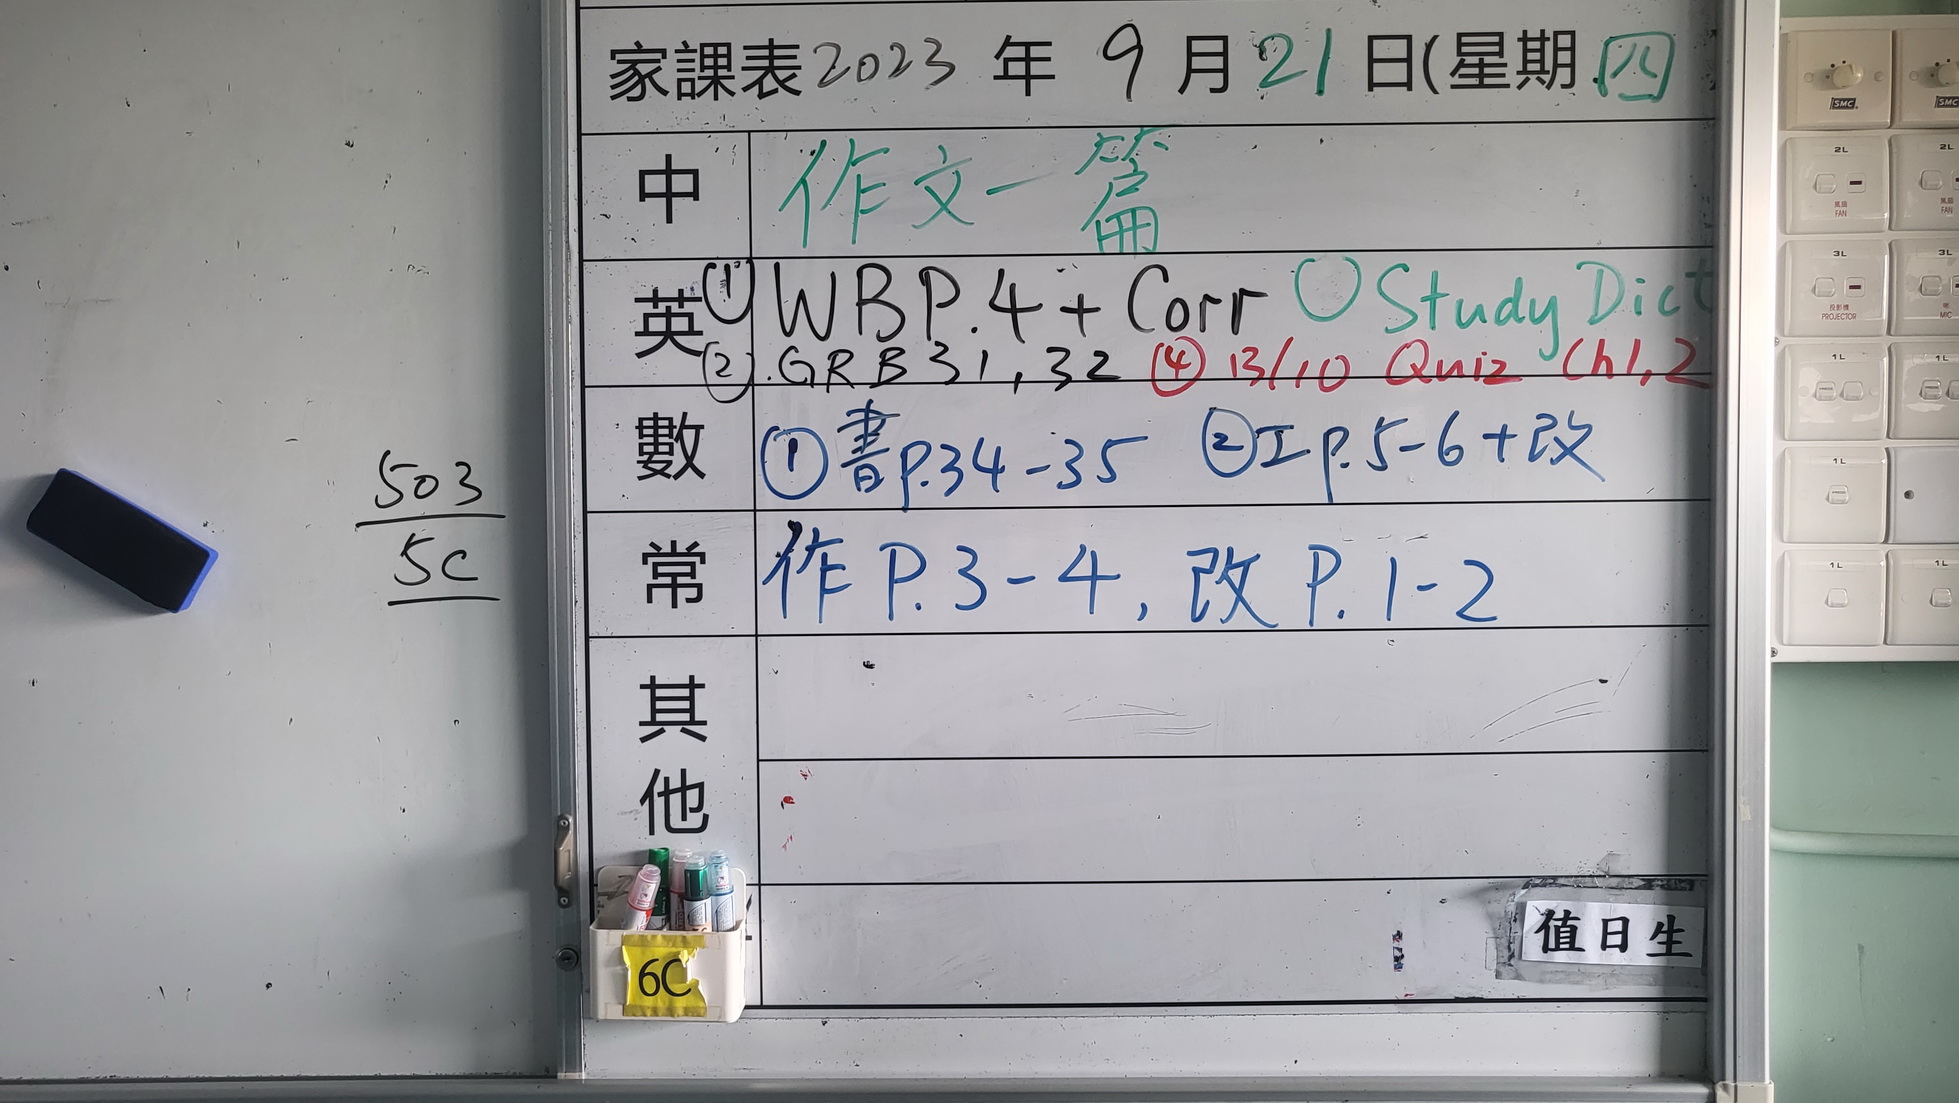 家課表2023年9月21日(星期四
中 作文一篇
英 ① WB P.4 + Corr ○ Study Dict
② GRB 31, 32 ④ 13/10 Quiz Ch1,2
數 ① 書 p.34-35 ② 工 p.5-6 + 改
常 作 P.3-4, 改 P.1-2
其他
值日生
503
5C
6C
SMC
SMC
2L
風扇
FAN
2L
風扇
FAN
3L
投影機
PROJECTOR
3L
MIC
1L
1L
1L
1L
1L